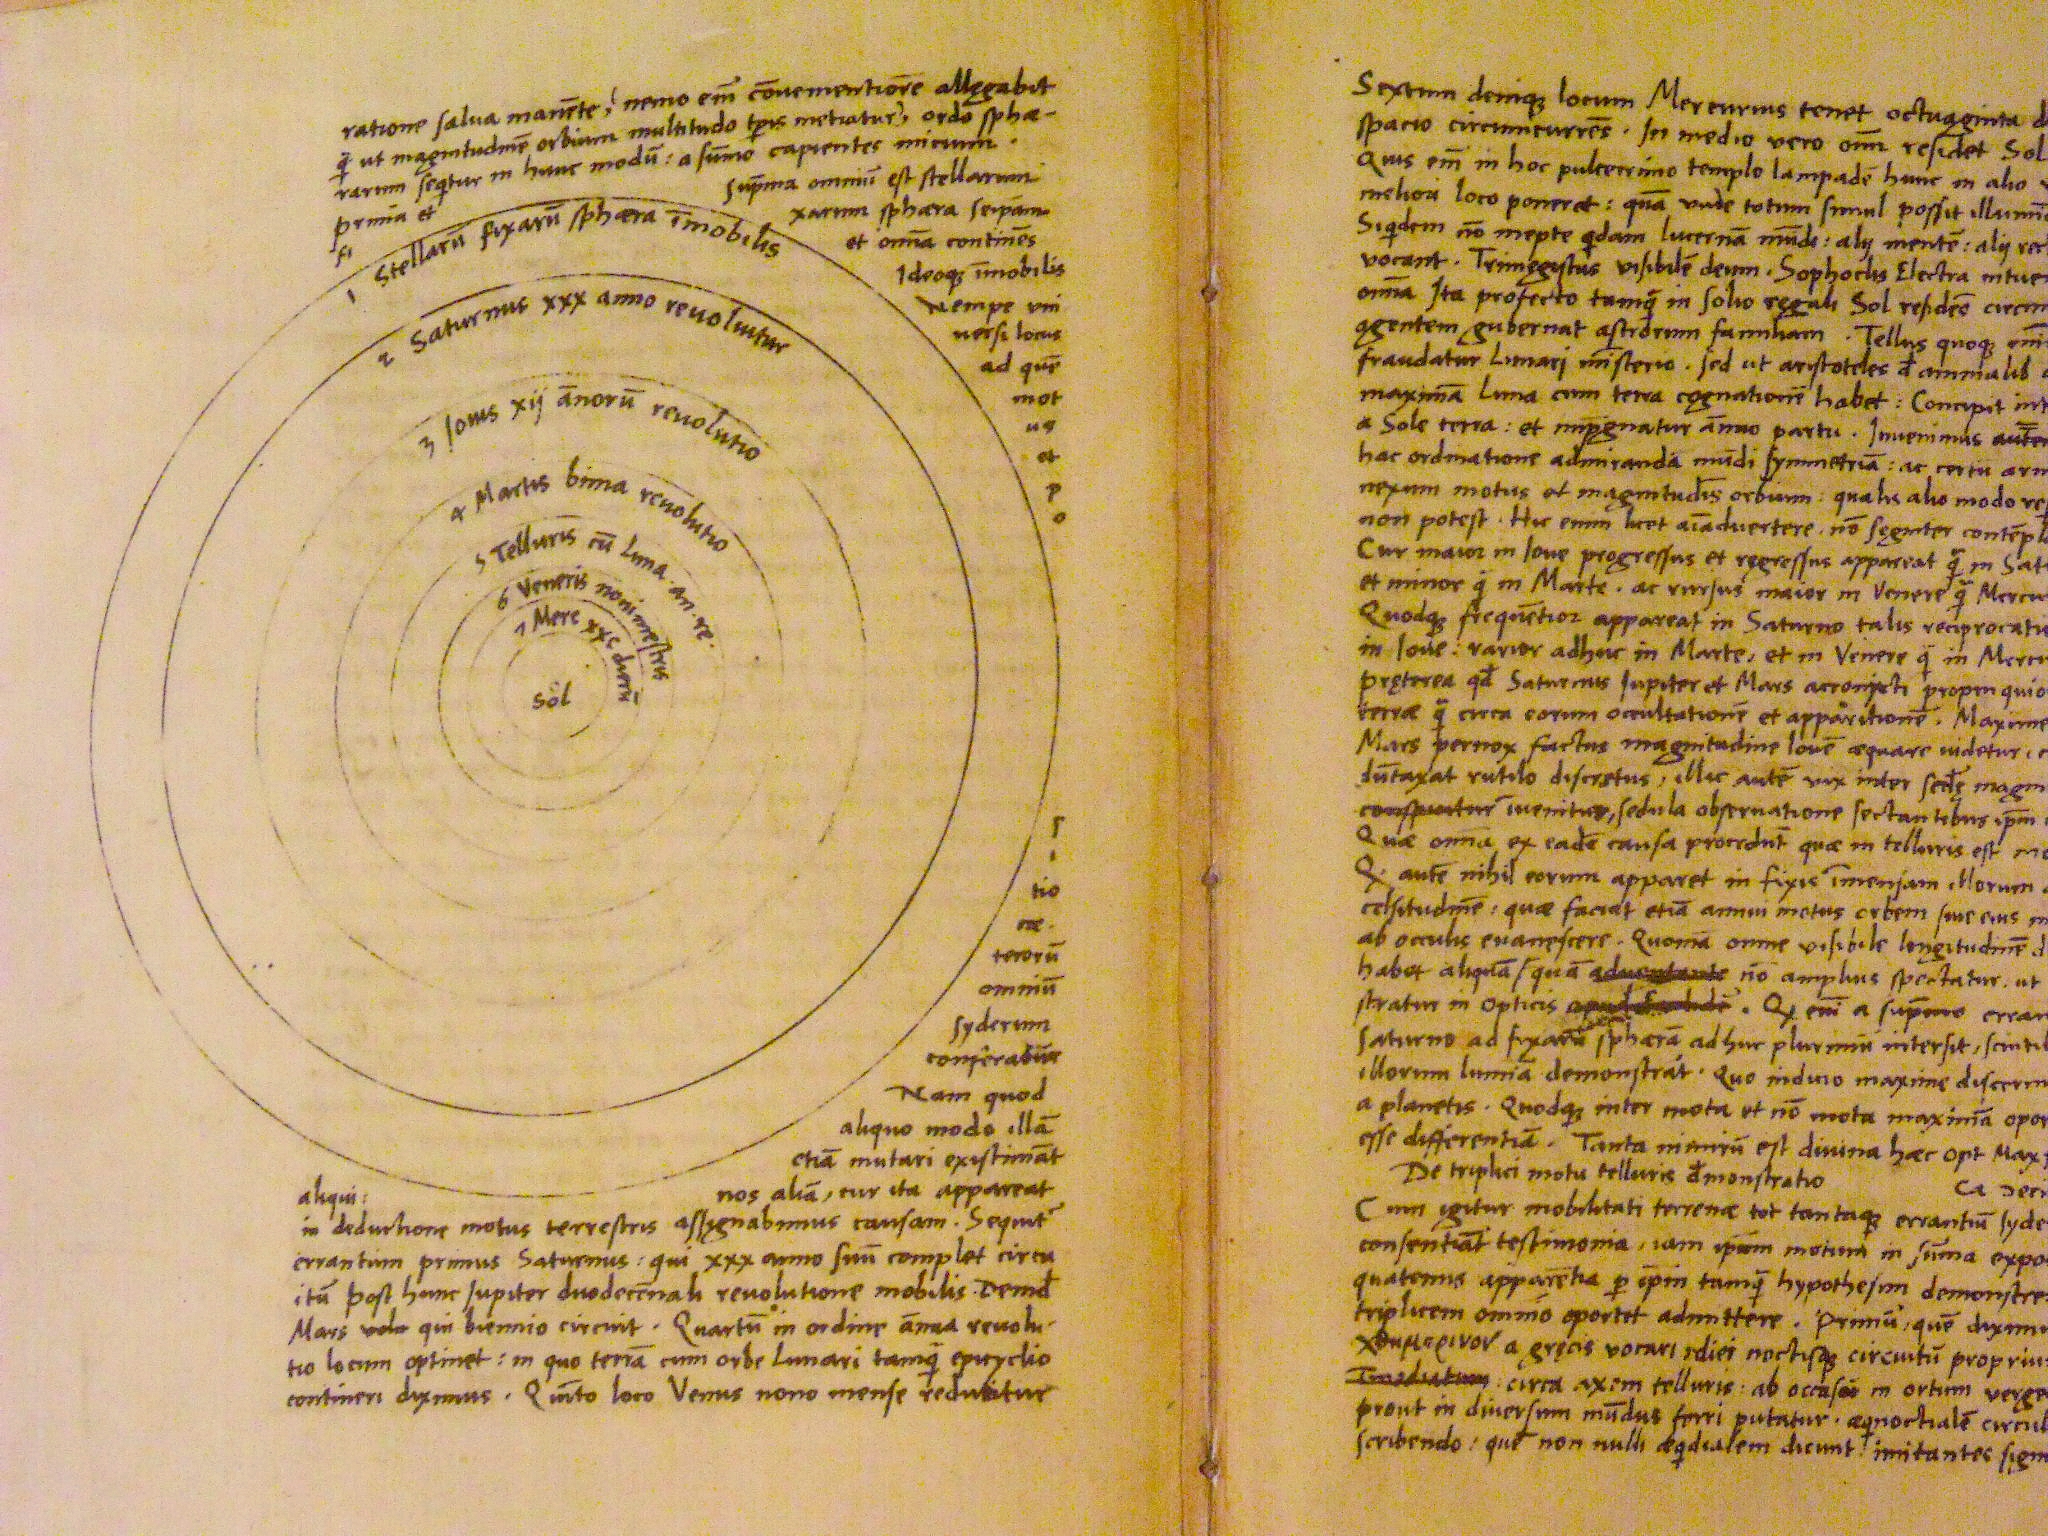 ratione salua manēte, nemo em̄ cōuenientiorē allęgabit
q̄ ut magnitudinē orbium multitudo tp̄is metiatur, ordo sphæ-
rarum seq̄tur in hunc modū: a sūmo capientes initium.
prima et supͫma omniū est stellarum
fi xarum sphæra seipsam
et om̄ia continēs
Ideoqꝫ īmobilis
Nempe vni
uersi locus
ad quē
mot
us
et
p
o
s
i
tio
cæ-
terorū
omniū
syderum
conferatur
Nam quod
aliquo modo illā
etiā mutari existimāt
aliqui: nos aliā, cur ita appareat
in deductione motus terrestris assignabimus causam. Sequit᷑
errantium primus Saturnus: qui xxx anno suū complet circu
itū post hunc Jupiter duodecēnali reuolutione mobilis. Demd̄
Mars qui biennio circuit. Quartū in ordine ānua reuolu-
tio locum optinet: in quo terrā cum orbe Lunari tamq̄ epicyclio
contineri diximus. Quīto loco Venus nono mense reducitur
1 Stellarū fixarū sphæra īmobilis
2 Saturnus xxx anno reuoluitur
3 Iouis xij ānorū reuolutio
4 Martis bima reuolutio
5 Telluris cū Luna an. re.
6 Veneris nonimestris
7 Merc xxc dierū
Sol
Sextum deniqꝫ locum Mercurius tenet octuaginta
spacio circumcurrēs. In medio vero om̄i residet Sol
Quis em̄ in hoc pulcerrimo templo lampadē hanc in alio
meliori loco poneret: quā vnde totum simul possit
Siq̄dem nō inepte q̄dam lucernā mūdi: alij mentē: alij
vocant. Trimęgistus visibilē deum. Sophoclis Electra
om̄ia Ita profecto tamq̄ in solio ręgali Sol residēs
agentem gubernat astrorum familiam. Tellus quoqꝫ
fraudatur Lunari ministerio. Sed ut aristoteles d̄ animalib
maximā Luna cum terra cognationē habet: Concipit
a Sole terra: et impręgnatur ānuo partu. Inuenimus
hac ordinatione admirandā mūdi symmetriā: ac certū
nexum motus et magnitudīs orbium: qualis alio modo
non potest. Hic enim licet aīaduertere, nō sęgniter
Cur maior in Ioue progressus et ręgressus appareat q̄
et minor q̄ in Marte. ac rursus maior in Venere q̄
Quodqꝫ frequētior appareat in Saturno talis
in Ioue: rarior adhuc in Marte, et in Venere q̄ in
Pręterea qd̄ Saturnus Jupiter et Mars acronycti
terræ q̄ circa eorum occultationē et apparitionē. Maxime
Mars pernox factus magnitudine Iouē æquare uidetur,
dūtaxat rutilo discretus, illic autē vix inter
conspicitur īuenitur, sedula obseruatione sectantibus
Quæ om̄ia ex eadē causa procedūt quæ in telluris est
Q autē nihil eorum apparet in fixis īmensam illorum
celsitudinē: quæ faciat etiā annui motus orbem siue eius
ab occulis euanescere. Quoniā omne visibile longitudinē
habet aliquā quā nō amplius spectatur, ut
stratur in opticis. Q em̄ a supͫmo
Saturno ad fixarū sphærā adhuc plurimū intersit,
illorum lumīa demonstrāt. Quo indicio maxime
a planetis. Quodqꝫ inter mota et nō mota maximā
esse differentiā. Tanta nimirū est diuina hæc Opt Max
De triplici motu telluris d̄monstratio Ca
Cum igitur mobilitati terrenæ tot tantaqꝫ errantiū
consentiāt testimonia, iam ipsum motum in sūma
quatenus apparētia p ip̄m tamq̄ hypothesim
triplicem omnīo oportet admittere. Primū, quē
a gręcis vocari diei noctisqꝫ circuitū
circa axem telluris: ab occasu in ortum
prout in diuersum mūdus ferri putatur. æq̄noctialē
scribendo: quē non nulli æq̄dialem dicunt: imitantes